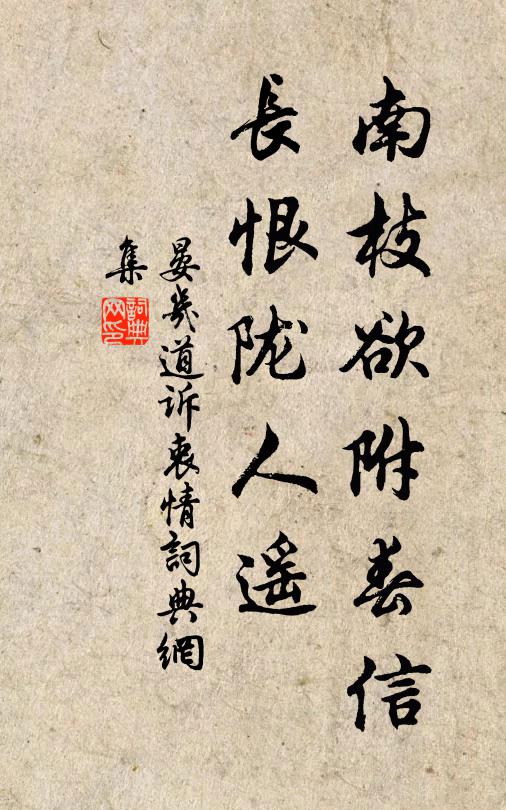 南枝欲附春信
長恨陇人遥
晏幾道诉衷情詞典網
集
詞典
网印